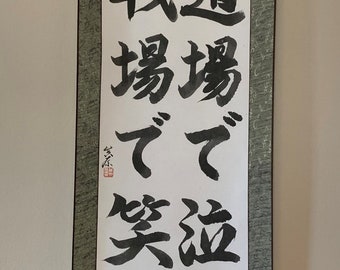 道場で泣
戦場で笑